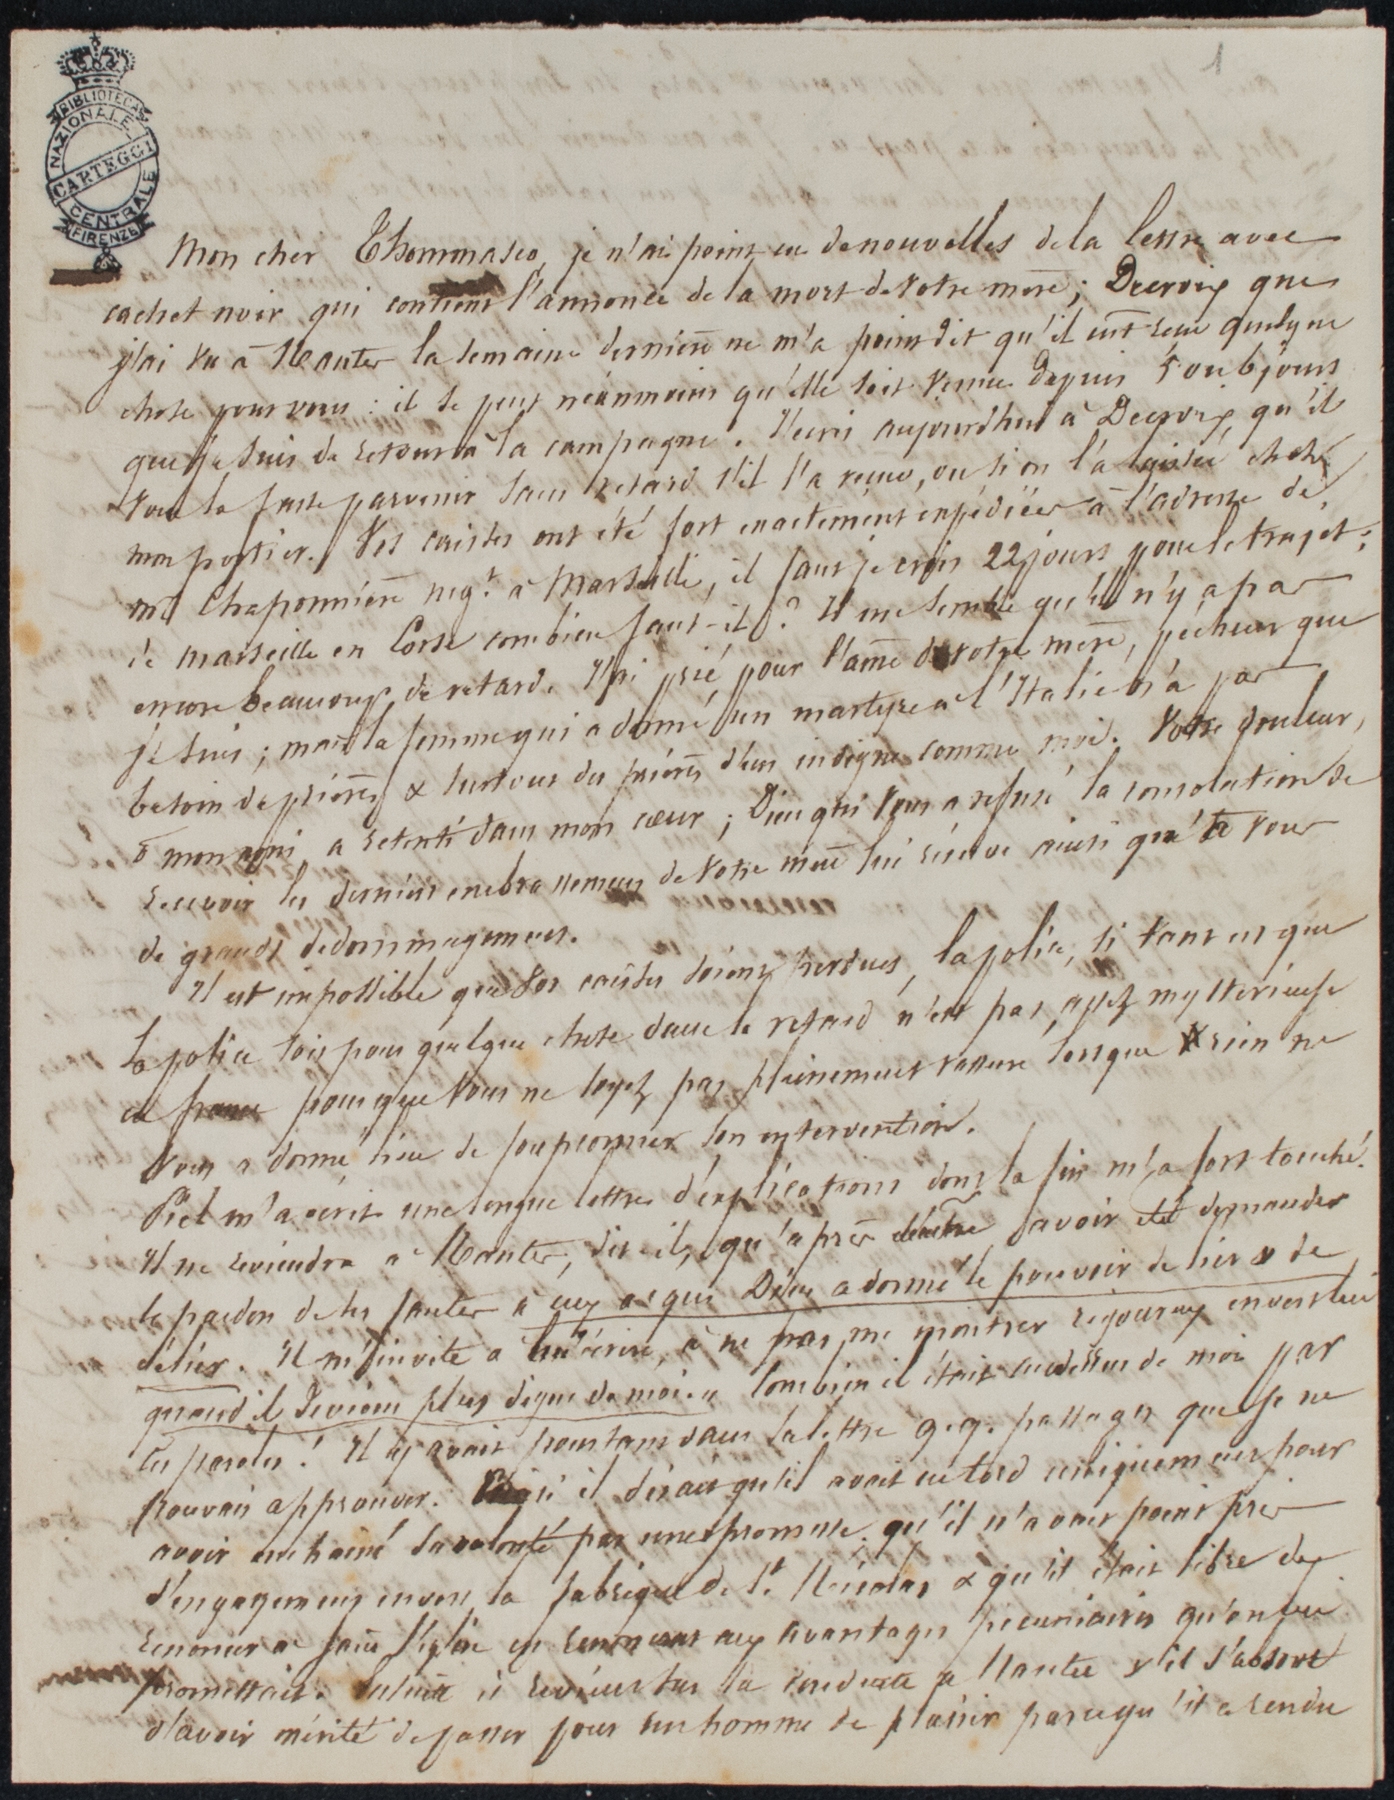 1
BIBLIOTECA
NAZIONALE
CARTEGGI
CENTRALE
FIRENZE
Mon cher Thommaseo, je n'ai point eu de nouvelles de la lettre avec
cachet noir qui contient l'annonce de la mort de votre mère; Decroix que
j'ai vu à Nantes la semaine dernière ne m'a point dit qu'il eut reçu quelque
chose pour vous : il se peut néanmoins qu'elle soit venue depuis 5 ou 6 jours
que je suis de retour à la campagne. J'écris aujourd'hui à Decroix qu'il
vous la fasse parvenir sans retard s'il l'a reçue, ou si on l'a laissée chez
mon portier. Vos caisses ont été fort exactement expédiées à l'adresse de
Mr Chaponnière negt. à Marseille, il faut je crois 22 jours pour le trajet;
de Marseille en Corse combien faut-il ? Il me semble qu'il n'y a pas
encore beaucoup de retard. J'ai prié pour l'âme de votre mère, pécheur que
je suis; mais la femme qui a donné un martyre à l'Italie n'a pas
besoin de prières & surtout des prières d'un indigne comme moi. Votre douleur,
ô mon ami a retenti dans mon cœur; Dieu qui vous a refusé la consolation de
recevoir les derniers embrassemens de votre mère lui réserve ainsi qu'à vous
de grands dedommagemens.
Il est impossible que vos caisses soient perdues, la police, si tant est que
la police soit pour quelque chose dans le retard n'est pas assez mystérieuse
en france pour que vous ne soyez pas pleinement rassuré lorsque rien ne
vous a donné lieu de soupçonner son intervention.
Piel m'a écrit une longue lettre d'explications dont la fin m'a fort touché.
Il ne reviendra à Nantes, dit-il, qu'après avoir été demander
le pardon de ses fautes à ceux à qui Dieu a donné le pouvoir de lier & de
délier. Il m'invite à lui écrire, à ne pas me montrer rigoureux envers lui
quand il devient plus digne de moi. Combien il était au dessus de moi par
ces paroles ! Il y avait pourtant dans sa lettre q.q. passages que je ne
pouvais approuver. il disait qu'il avait eu tord uniquement pour
avoir enchainé sa volonté par une promesse, qu'il n'avait point pris
d'engagement envers la fabrique de St. Nicolas & qu'il était libre de
renoncer à faire l'église en renonçant aux avantages pécuniaires qu'on lui
promettait. Ensuite il revient sur sa conduite à Nantes s'il s'absout
d'avoir mérité de passer pour un homme de plaisir parcequ'il a rendu